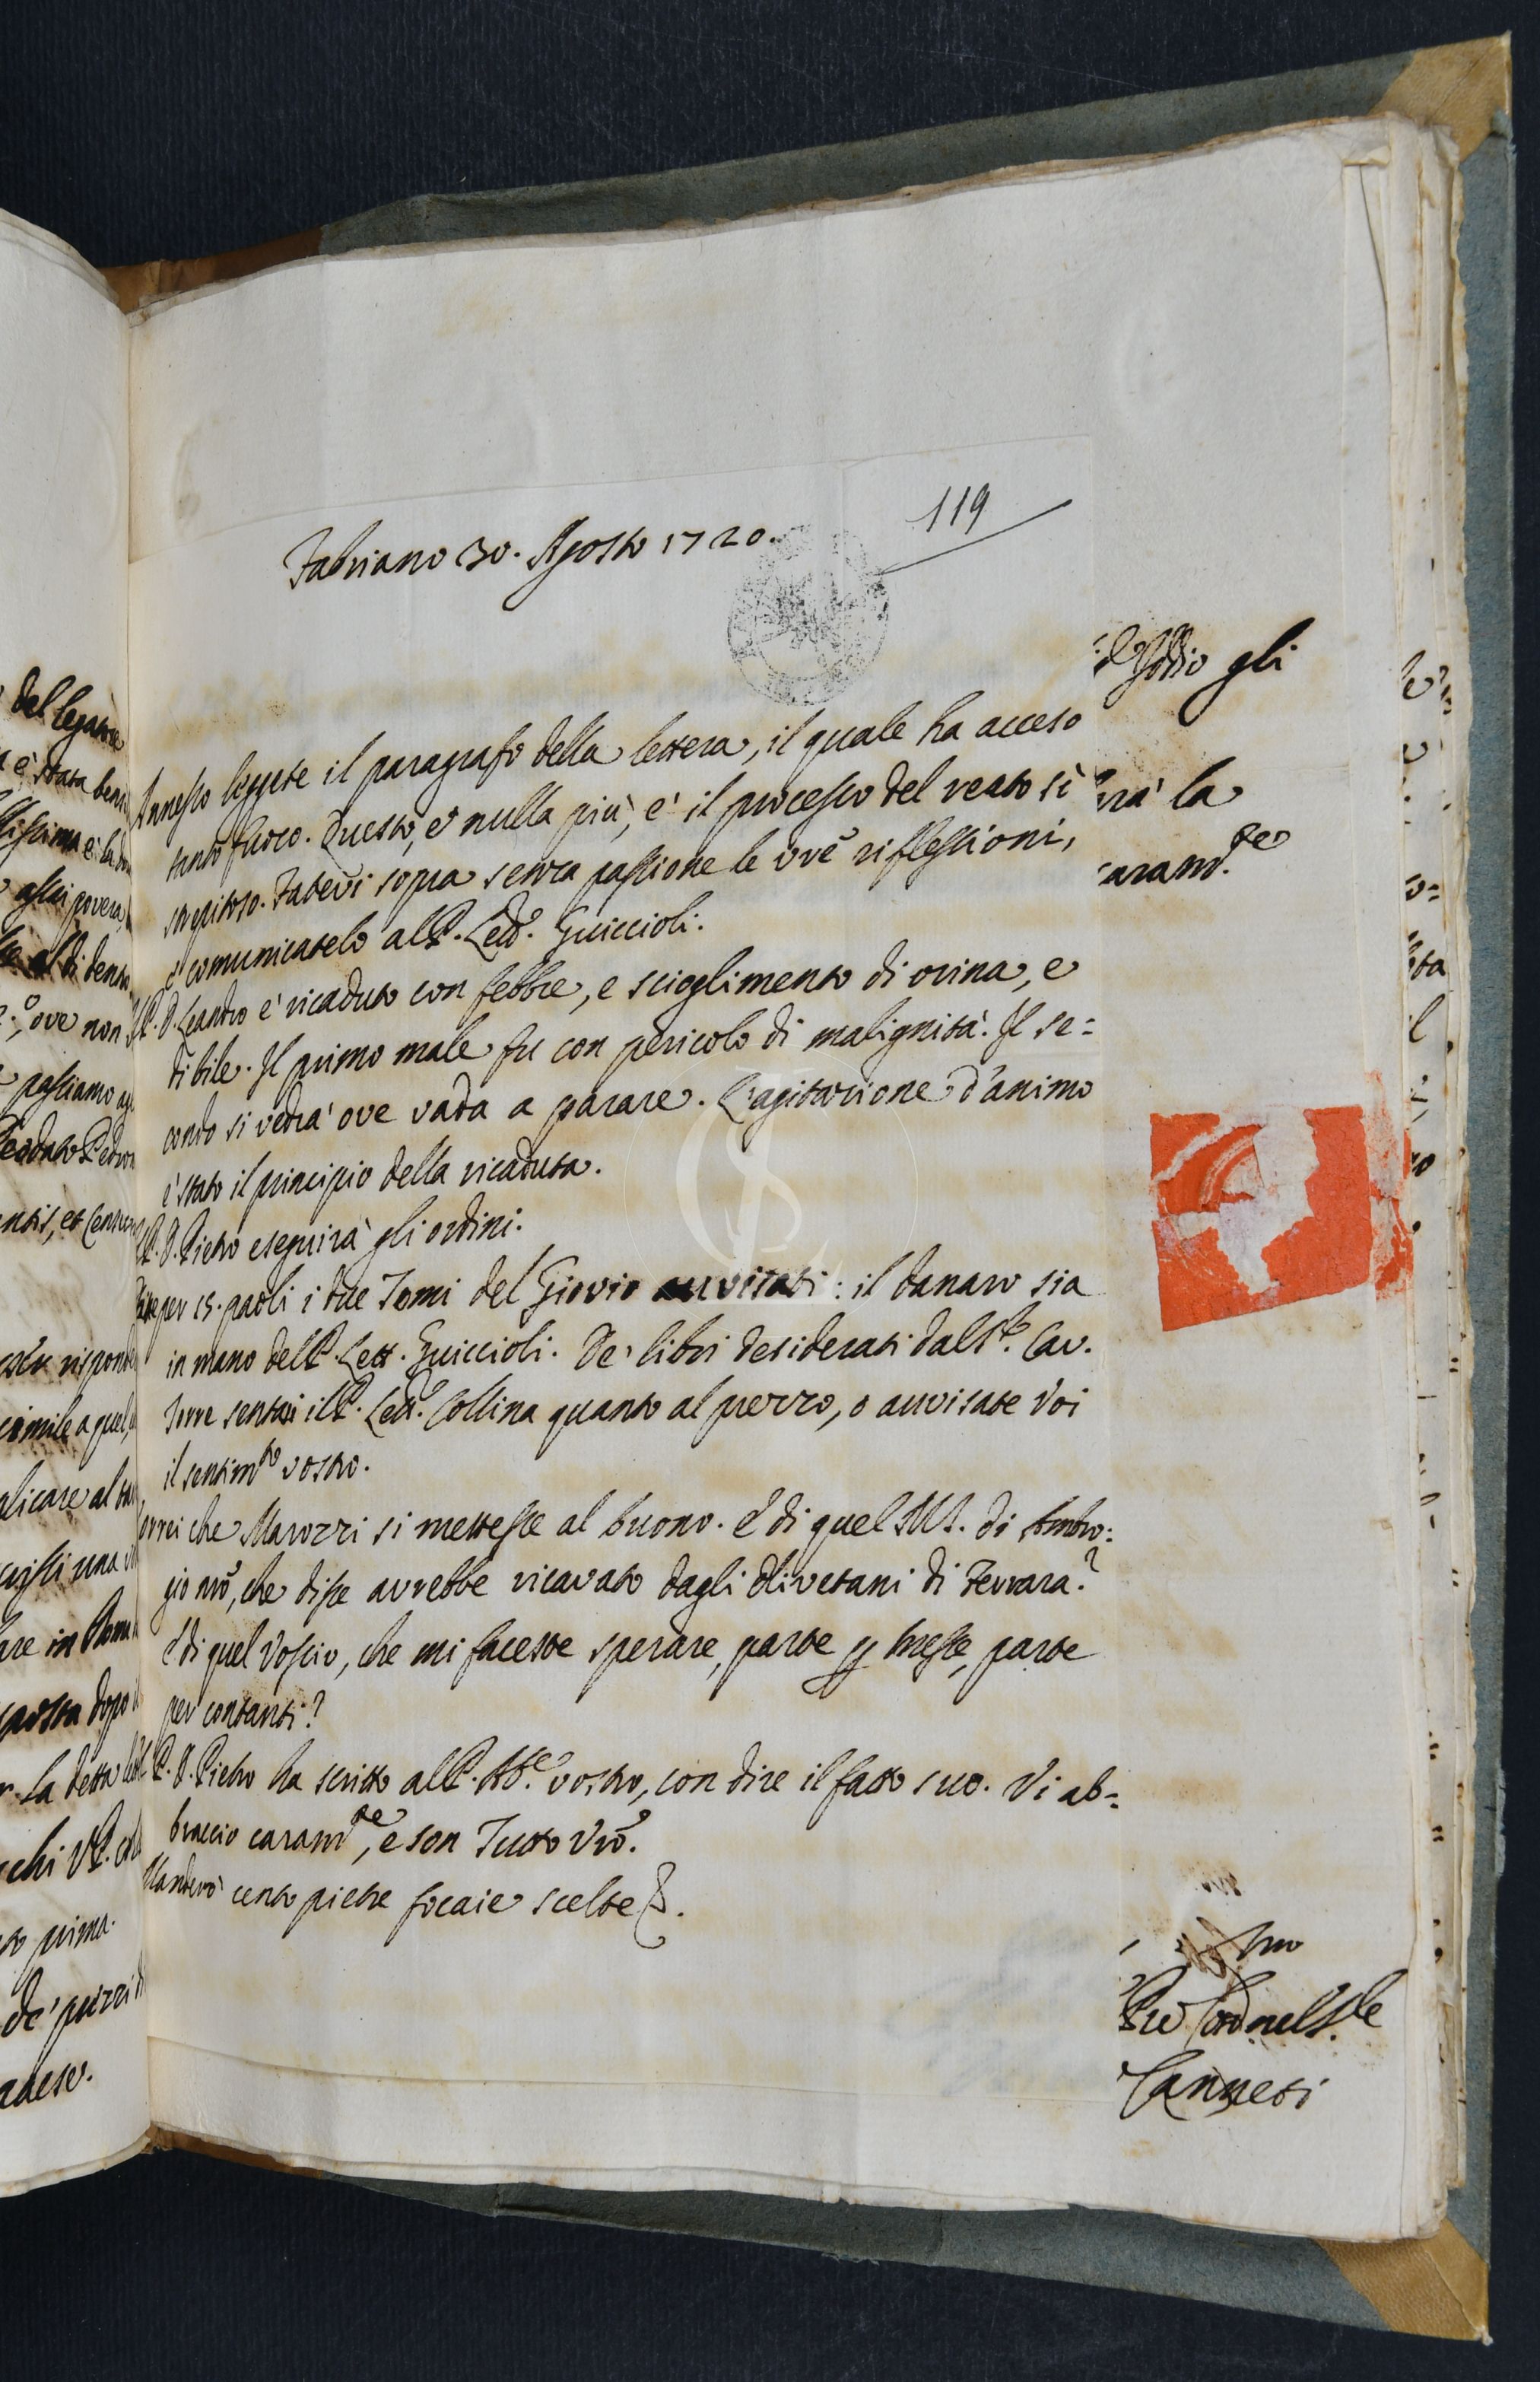 119
Fabriano 30. Agosto 1720.
Annesso leggete il paragrafo della lettera, il quale ha acceso
tanto fuoco. Questo, e nulla più, è il processo del reato sì
strepitoso. Fatevi sopra senza passione le vr̃e riflessioni,
e comunicatelo al P. Lett.e Guiccioli.
Il P. D. Leandro è ricaduto con febbre, e scioglimento di orina, e
di bile. Il primo male fu con pericolo di malignità. Il se=
condo si vedrà ove vada a parare. L'agitazione d'animo
è stato il principio della ricaduta.
Il P. D. Pietro eseguirà gli ordini.
per 15. paoli i due Tomi del Giovio avvisati: il danaro sia
in mano del P. Lett. Guiccioli. De' libri desiderati dal S.r Cav.
Torre senta il P. Lett.e Collina quanto al prezzo, o avvisate voi
il sentim.to vostro.
Vorrei che Marozzi si mettesse al buono. E di quel MS. di Ambro=
gio nr̃o, che disse avrebbe ricavato dagli Olivetani di Ferrara?
E di quel Vossio, che mi faceste sperare, parte p messe, parte
per contanti?
Il P. D. Pietro ha scritto al P. Ab.e vostro, con dire il fatto suo. Vi ab=
braccio caram.te, e son Tutto Vr̃o.
Manderò cento pietre focaie scelte &.
gli
rà la
caram.te
Canneti
del legatore
è stata
assai povera
al di dentro
ove non
passiamo
Pedro
rispond
simile a quel
plicare al
una
in Roma
posta dopo
la detta
chi VP.
to prima.
de' prezzi